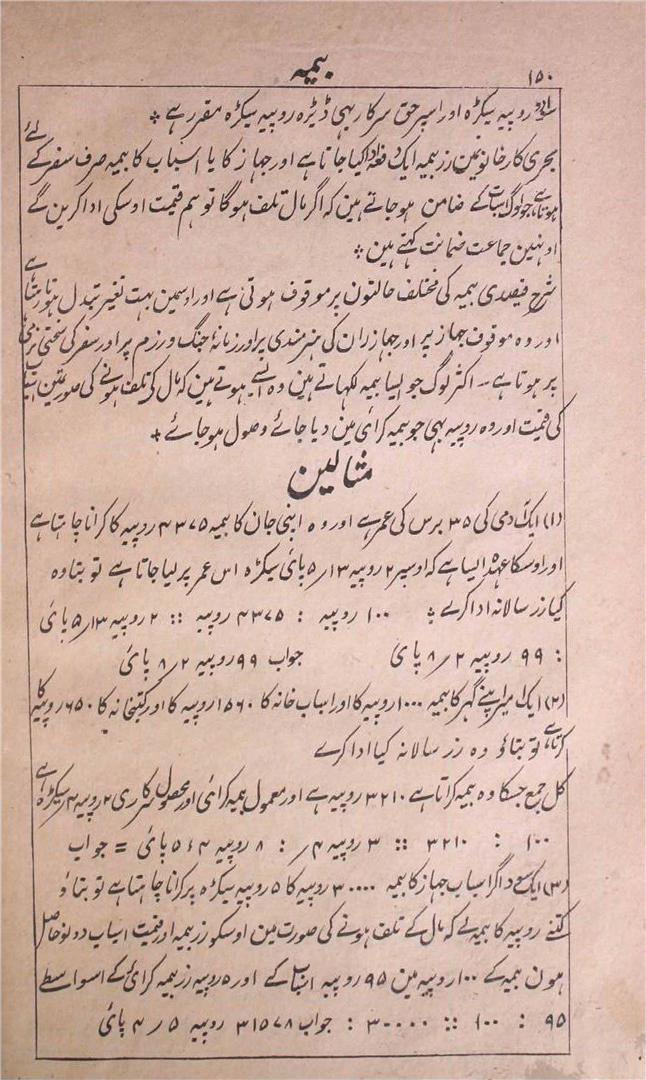 ۱۵۰
بیمہ
روپیہ سیکڑہ اور اسپر حق سرکار بہی ڈیڑہ روپیہ سیکڑہ مقرر ہے ٭
بحری کارخانونمین زر بیمہ ایکدفعہ ادا کیا جاتا ہے اور جہاز کا یا اسباب کا بیمہ صرف سفر کے لئے
ہوتا ہے جو لوگ اسبات کے ضامن ہو جاتے ہین کہ اگر مال تلف ہوگا تو ہم قیمت اوسکی ادا کرین گے
اونہین جماعت ضمانت کہتے ہین ٭
شرح فیصدی بیمہ کی مختلف حالتون پر موقوف ہوتی ہے اور اوسمین بہت تغیر تبدل ہوتا رہتا ہے
اور وہ موقوف جہاز پر اور جہازران کی ہنرمندی پر اور زمانۂ جنگ و رزم پر اور سفر کی سختی نرمی
پر ہوتا ہے ۔ اکثر لوگ جو ایسا بیمہ لکہاتے ہین وہ ایسے ہوتے ہین کہ مال کی تلف ہونے کی صورتمین اسباب
کی قیمت اور وہ روپیہ بہی جو بیمہ کرائی مین دیا جائے وصول ہو جائے ٭
مثالین
(۱) ایک آدمی کی ۳۵ برس کی عمر ہے اور وہ اپنی جان کا بیمہ ۴۳۷۵ روپیہ کا کرانا چاہتا ہے
اور اوسکا عہدہ ایسا ہے کہ اوسپر ۲ روپیہ ۱۳ / ۵ پائی سیکڑہ اس عمر پر لیا جاتا ہے تو بتاؤ وہ
کیا زر سالانہ ادا کرے ٭ ۱۰۰ روپیہ : ۴۳۷۵ روپیہ :: ۲ روپیہ ۱۳ / ۵ پائی
: ۹۹ روپیہ ۲ / ۸ پائی جواب ۹۹ روپیہ ۲ / ۸ پائی
(۲) ایک امیر اپنے گہر کا بیمہ ۱۰۰۰ روپیہ کا اور اسباب خانہ کا ۱۵۶۰ روپیہ کا اور کتبخانہ کا ۶۵۰ روپیہ کا
کرتا ہے تو بتاؤ وہ زر سالانہ کیا ادا کرے
کل جمع جسکا وہ بیمہ کراتا ہے ۳۲۱۰ روپیہ ہے اور معمول بیمہ کرائی اور محصول سرکاری روپیہ سیکڑہ ہے
۱۰۰ : ۳۲۱۰ :: ۳ روپیہ ۴ / : ۸ روپیہ ۴ ، ۵ پائی = جواب
(۳) ایک سوداگر اسباب جہاز کا بیمہ ۳۰۰۰۰ روپیہ کا ۵ روپیہ سیکڑہ پر کرانا چاہتا ہے تو بتاؤ
کتنے روپیہ کا بیمہ لے کہ مال کے تلف ہونے کی صورت مین اوسکو زر بیمہ اور قیمت اسباب دونو حاصل
ہون بیمہ کے ۱۰۰ روپیہ مین ۹۵ روپیہ اسباب کے اور ۵ روپیہ زر بیمہ کرائی کے اسواسطے
۹۵ : ۱۰۰ :: ۳۰۰۰۰ : جواب ۳۱۵۷۸ روپیہ ۵ / ۴ پائی